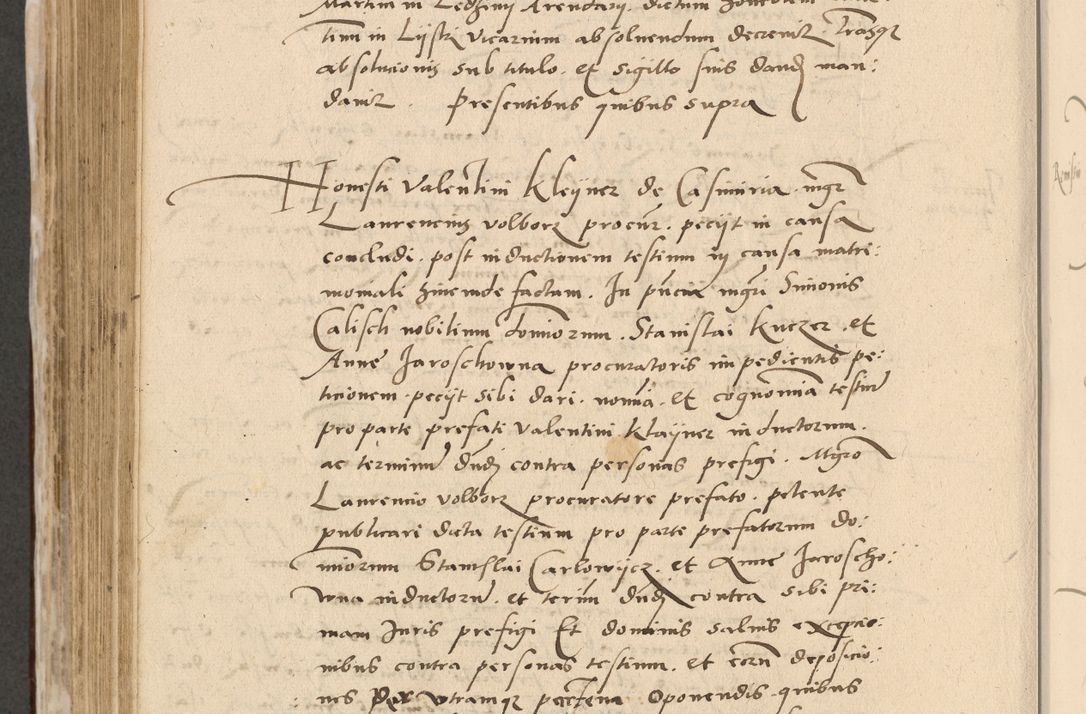 Martin in Ledziny Arendarij. dictum
tim in Lijstz vicarium absoluendum decreuit trasq
absolucionis sub titulo. et sigillo suis dand man:
dauit. Presentibus quibus supra
Honesti Valentini Kleijner de Casimiria mgr
Laurencius volborz procur. pecijt in causa
concludi. post inductionem testium in causa matri:
moniali hincinde factam. In pncia mgri Simonis
Calisch nobilium domiorum. Stanislai Kuczer. et
Anne Jaroschowna procuratoris impedientis pe:
ticionem. pecijt sibi dari. nomia. et cognomia testiu
pro parte prefati Valentini Klaijner inductorum.
ac terminu dnd contra personas prefigi. Mgro
Laurencio volborz procuratore prefato. petente
publicari dicta testium pro parte prefatorum do:
miorum Stanislai Carlowijcz. et Anne Jaroscho:
wna inductoru. et termi dnd contra sibi pri:
mam Juris prefigi Et dominis saluis excepcio:
nibus contra personas testium. et eorum deposicio:
nes per vtramq partem Oponendis. quibus